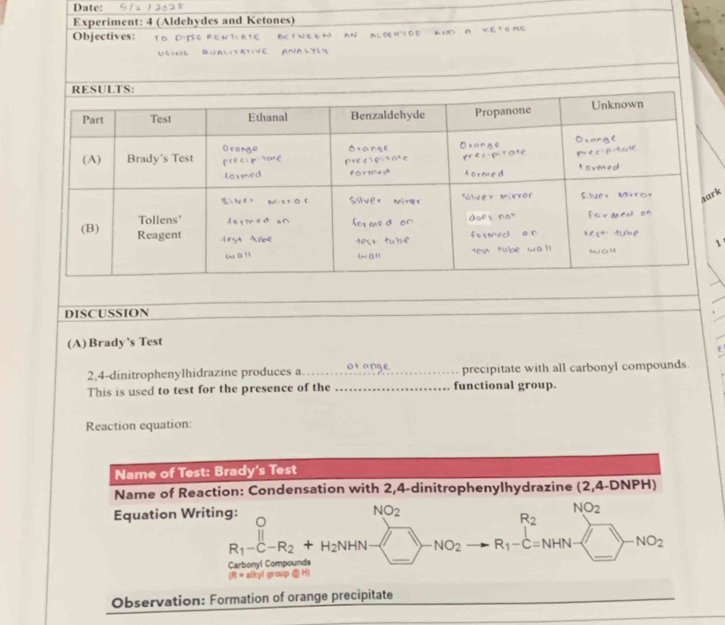 Date: 5/2/2025
Experiment: 4 (Aldehydes and Ketones)
Objectives: TO DIFFERENTIATE BETWEEN AN ALDEHYDE AND A KETONE
USING QUALITATIVE ANALYSIS
RESULTS:
Part Test Ethanal Benzaldehyde Propanone Unknown
(A) Brady's Test
Orange precipitate formed
Orange precipitate formed
Orange precipitate formed
Orange precipitate formed
(B) Tollens' Reagent
Silver mirror formed on test tube wall
Silver mirror formed on test tube wall
Silver mirror does not formed on test tube wall
Silver mirror formed on test tube wall
mark
DISCUSSION
(A) Brady's Test
2,4-dinitrophenylhidrazine produces a.....orange.....precipitate with all carbonyl compounds.
This is used to test for the presence of the ........................ functional group.
Reaction equation:
Name of Test: Brady's Test
Name of Reaction: Condensation with 2,4-dinitrophenylhydrazine (2,4-DNPH)
Equation Writing:
O
R1-C-R2 + H2NHN- NO2 -NO2 → R1-C=NHN- R2 NO2 -NO2
Carbonyl Compounds
(R = alkyl group @ H)
Observation: Formation of orange precipitate